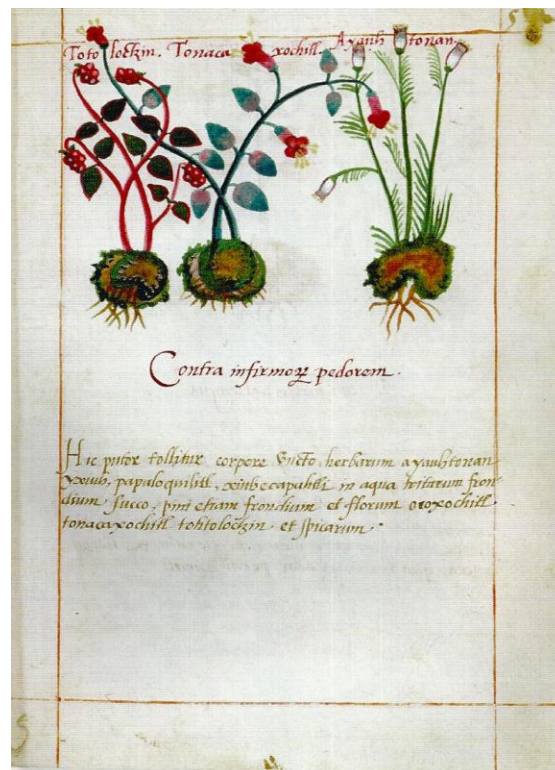 Totolockzin. Tonaca xochitl. Ayauhtonan.
Contra infirmoꝝ pedorem.
Hic putor tollitur corpore Vncto, herbarum ayauhtonan
yxiuh, papaloquilitl, xiuhecapahtli in aqua tritarum fron
dium, succo, pini etiam frondium et florum oroxochitl
tonacaxochitl totitolockzin. et spicarum.